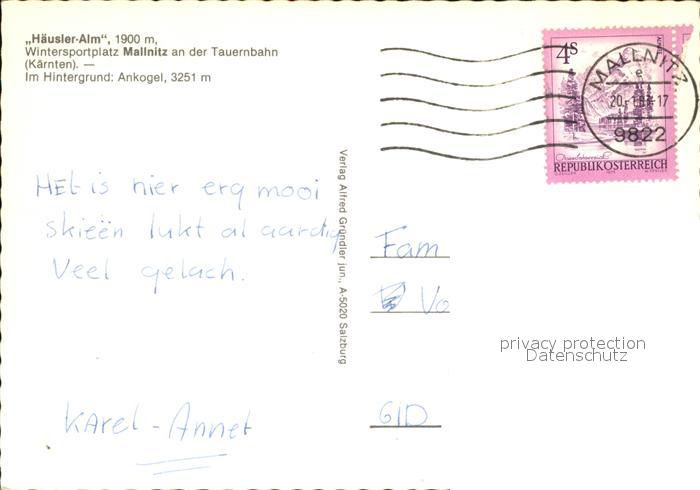 „Häusler-Alm“, 1900 m,
Wintersportplatz Mallnitz an der Tauernbahn
(Kärnten). —
Im Hintergrund: Ankogel, 3251 m
4 S
MALLNITZ
e
9822
REPUBLIK ÖSTERREICH
HEt is hier erg mooi
skieën lukt al aardig
Veel gelach.
Karel - Annet
Verlag Alfred Gründler jun., A-5020 Salzburg
Fam
Vo
privacy protection
Datenschutz
GID